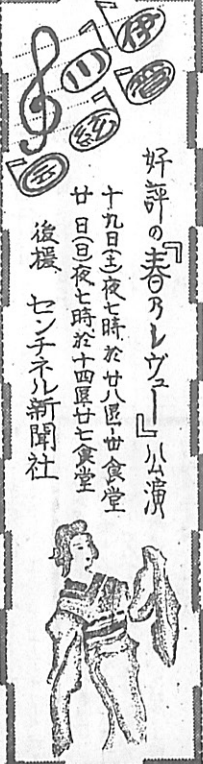 伊
川
好評の『春乃レヴュー』公演
十九日(土)夜七時、於 廿八區・丗食堂
廿日(日)夜七時於十四區廿七食堂
後援 センチネル新聞社